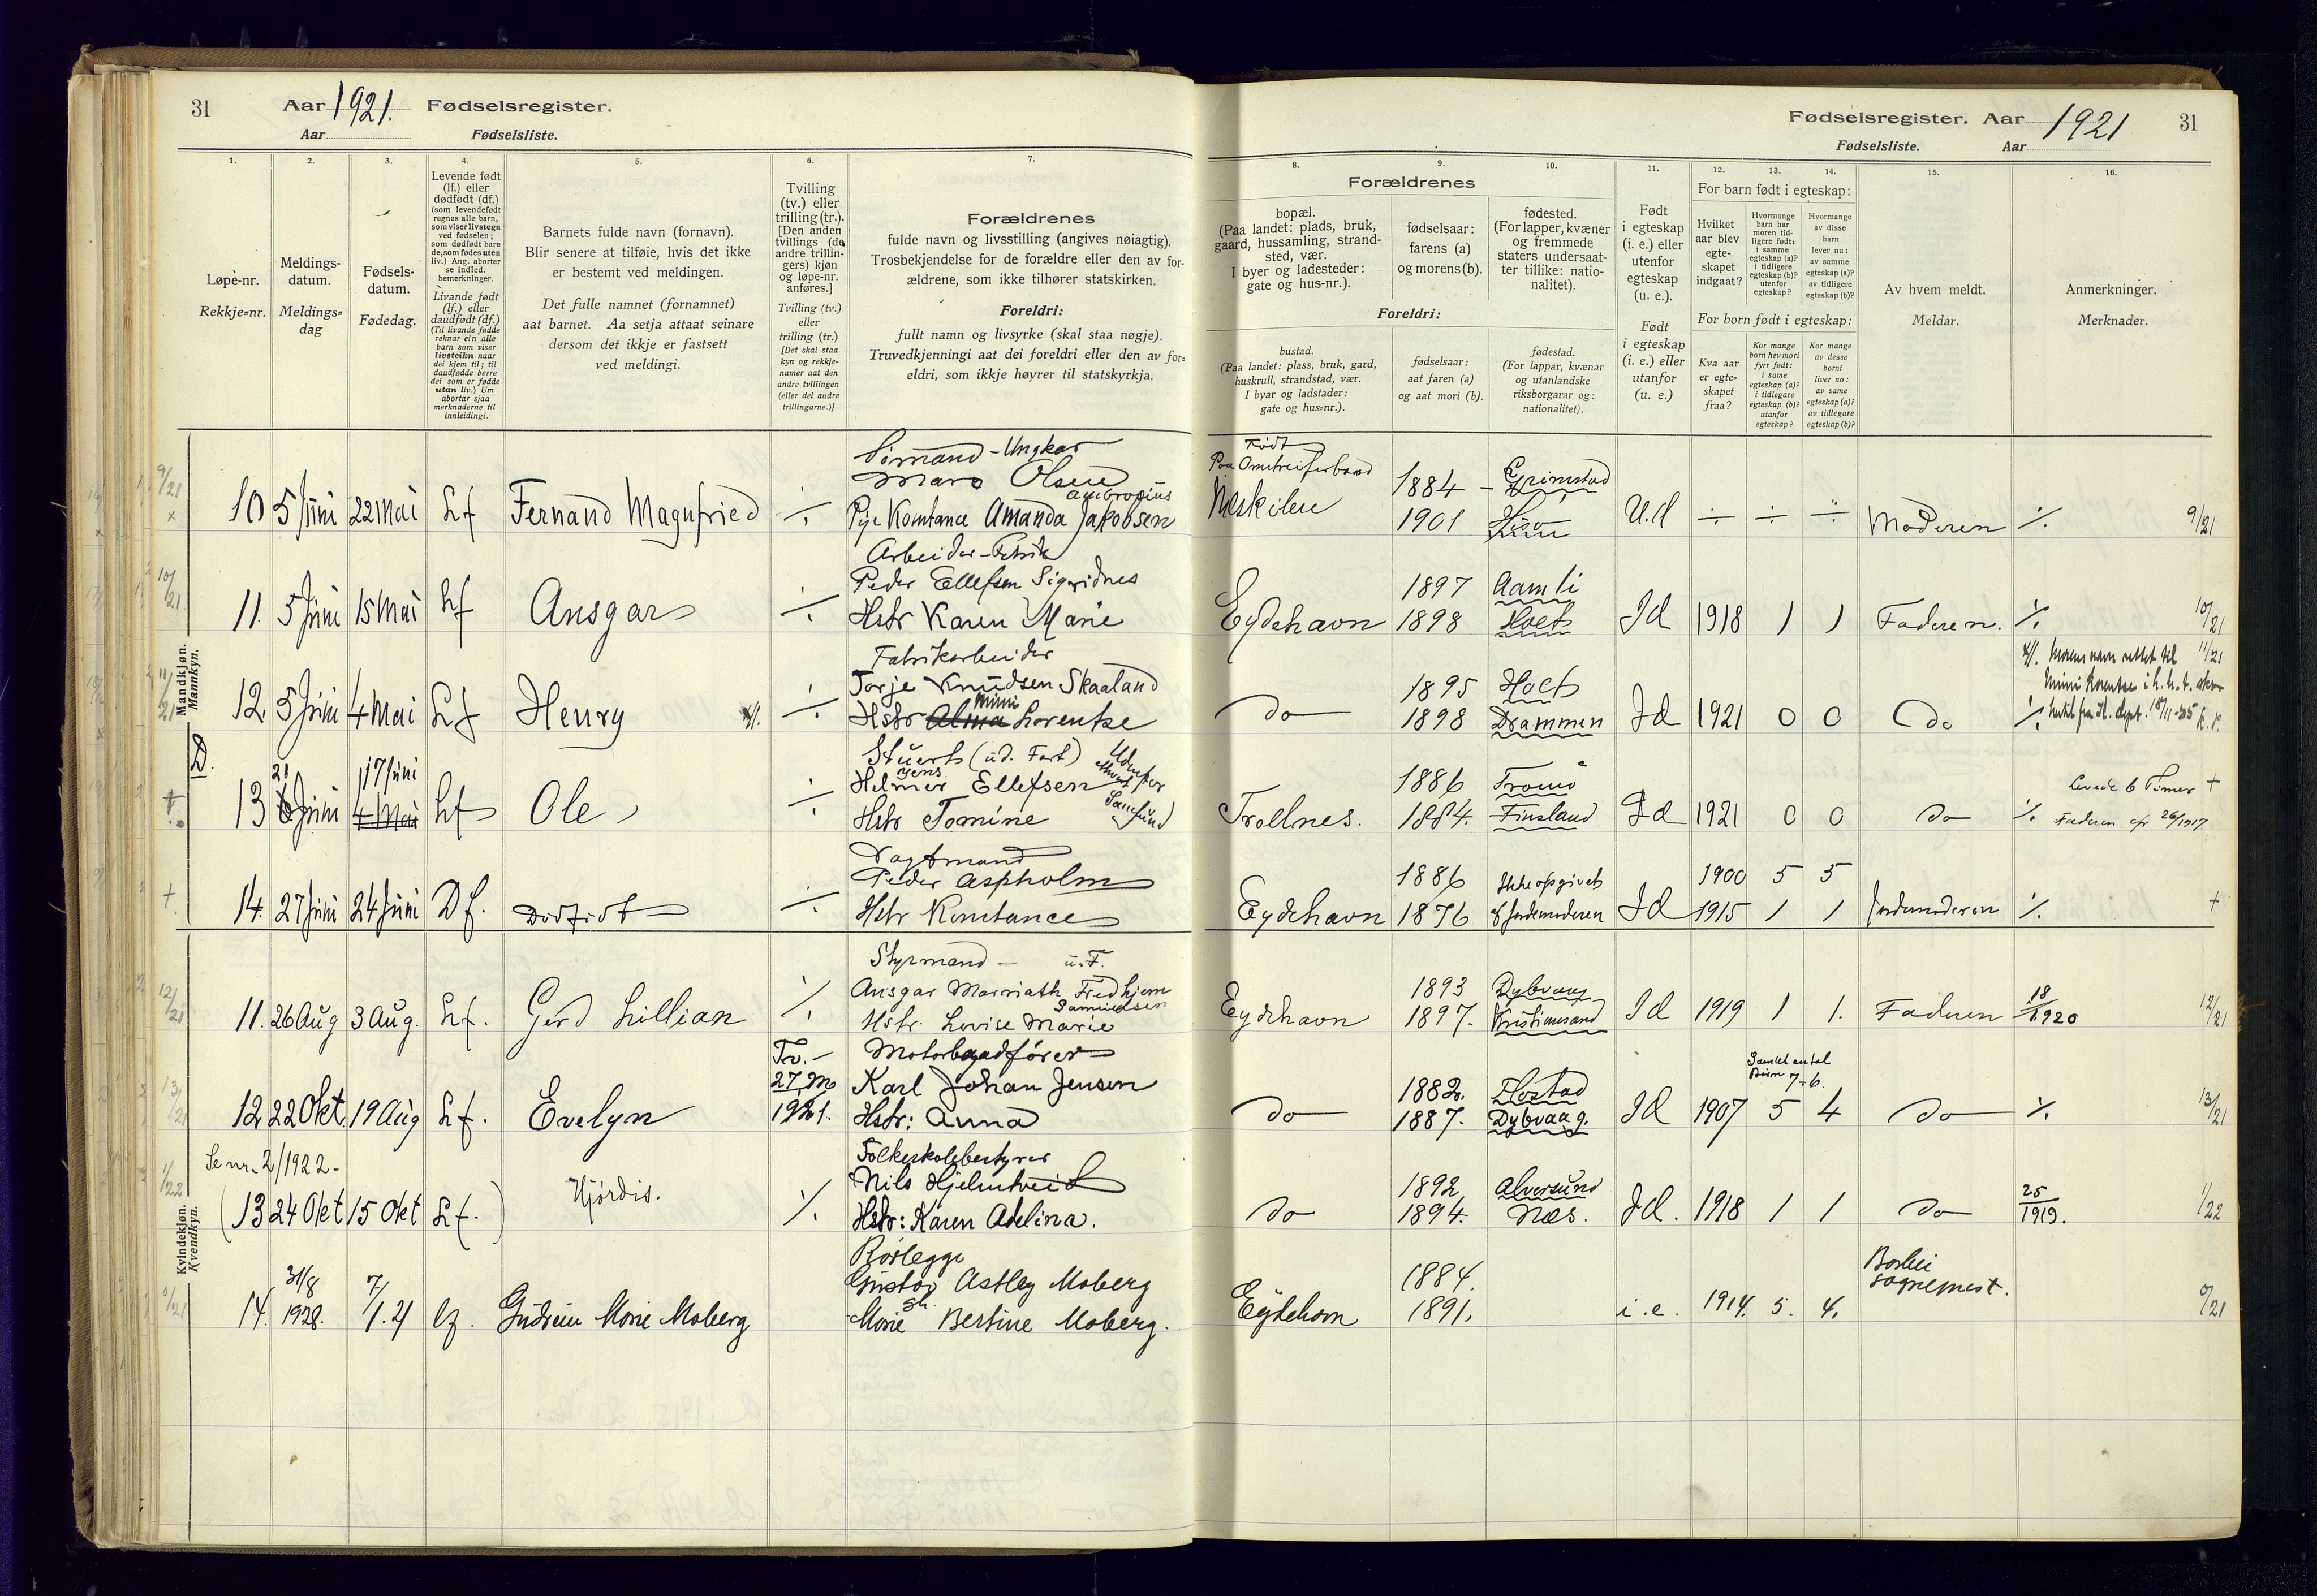 31 Aar 1921. Fødselsregister.
Aar Fødselsliste.
Fødselsregister. Aar 1921 31
Fødselsliste. Aar
1. 2. 3. 4. 5. 6. 7.
8. 9. 10. 11. 12. 13. 14. 15. 16.
Løpe-nr.
Rekkje=nr.
Meldings-
datum.
Meldings=
dag
Fødsels-
datum.
Fødedag.
Levende født
(lf.) eller
dødfødt (df.)
(som levendefødt
regnes alle barn,
som viser livstegn
ved fødselen;
som dødfødt bare
de, som fødes uten
liv.) Ang. aborter
se indled.
bemerkninger.
Livande født
(lf.) eller
daudfødt (df.)
(Til livande fødde
reknar ein alle
barn som viser
livsteikn naar
dei kjem til; til
daudfødde berre
dei som er fødde
utan liv.) Um
abortar sjaa
merknaderne til
innleidingi.
Barnets fulde navn (fornavn).
Blir senere at tilføie, hvis det ikke
er bestemt ved meldingen.
Det fulle namnet (fornamnet)
aat barnet. Aa setja attaat seinare
dersom det ikkje er fastsett
ved meldingi.
Tvilling
(tv.) eller
trilling (tr.).
[Den anden
tvillings (de
andre trillin-
gers) kjøn
og løpe-nr.
anføres.]
Tvilling (tv.)
eller
trilling (tr.)
[Det skal staa
kyn og rekkje-
numer aat den
andre tvillingen
(eller dei andre
trillingarne.)]
Forældrenes
fulde navn og livsstilling (angives nøiagtig).
Trosbekjendelse for de forældre eller den av for-
ældrene, som ikke tilhører statskirken.
Foreldri:
fullt namn og livsyrke (skal staa nøgje).
Truvedkjenningi aat dei foreldri eller den av for=
eldri, som ikkje høyrer til statskyrkja.
Forældrenes
bopæl.
(Paa landet: plads, bruk,
gaard, hussamling, strand-
sted, vær.
I byer og ladesteder:
gate og hus-nr.).
fødselsaar:
farens (a)
og morens (b).
fødested.
(For lapper, kvæner
og fremmede
staters undersaat-
ter tillike: natio-
nalitet).
Foreldri:
bustad.
(Paa landet: plass, bruk, gard,
huskrull, strandstad, vær.
I byar og ladstader:
gate og hus=nr.).
fødselsaar:
aat faren (a)
og aat mori (b).
fødestad.
(For lappar, kvænar
og utanlandske
riksborgarar og:
nationalitet).
Født
i egteskap
(i. e.) eller
utenfor
egteskap
(u. e.).
Født
i egteskap
(i. e.) eller
utanfor
egteskap
(u. e.)
For barn født i egteskap:
Hvilket
aar blev
egte-
skapet
indgaat?
Hvormange
barn har
moren tid-
ligere født:
i samme
egteskap (a)?
i tidligere
egteskap (b)?
utenfor
egteskap?
Hvormange
av disse
barn
lever nu:
av samme
egteskap (a)?
av tidligere
egteskap (b)?
For born født i egteskap:
Kva aar
er egte=
skapet
fraa?
Kor mange
born hev mori
fyrr født:
i same
egteskap (a)?
i tidlegare
egteskap (b)?
utanfor
egteskap?
Kor mange
av desse
borni
liver no:
av same
egteskap (a)?
av tidlegare
egteskap (b)?
Av hvem meldt.
Meldar.
Anmerkninger.
Merknader.
Mandkjøn.
Mannkyn.
Sømand - Ungkar
Olsen
Ambrosius
10 5 Juni 22 Mai Lf Fernand Magnfried ÷ Pige Konstance Amanda Jakobsen
Født
Neskilen 1884 - Grimstad
1901 Hisø U.d ÷ ÷ ÷ Moderen ·/. 9/21
Arbeider - Fabrik
Peder Ellefsen Sigridnes
11. 5 Juni 15 Mai Lf Ansgar ÷ Hstr Karen Marie
1897 Aamli
Eydehavn 1898 Holt Id 1918 1 1 Faderen. ·/. 10/21
Fabrikarbeider
Torje Knudsen Skaaland
Mimi
12. 5 Juni 4 Mai Lf Henry ÷ Hstr Alma Lorentze
1895 Holt
do 1898 Drammen Id 1921 0 0 do ·/.
Morens navn rettet til 11/21
D.
Stuert (ud. Fart)
Jens
Helmer Ellefsen
21 17 Juni
13 6 Juni 4 Mai Lf Ole ÷ Hstr Tomine
1886 Tromø
Trollnes. 1884. Finsland Id 1921 0 0 do ·/.
Levede 6 Timer +
Vagtmand
Peder Aspholm
14. 27 Juni 24 Juni Df. Dødfødt ÷ Hstr Konstance
1886 Ikke opgivet 1900 5 5
Eydehavn 1876 af Jordemoderen Id 1915 1 1 Jordemoderen ·/. +
Kvindekjøn.
Kvendkyn.
Styrmand - u.F.
Ansgar Marriath Fredhjem
Samuelsen
11. 26 Aug 3 Aug. Lf. Gerd Lillian ·/. Hstr. Lovise Marie
1893 Dybvaag
Eydehavn 1897. Kristiansand Id 1919 1 1. Faderen 18/1920 12/21
Tv.- Motorbaadfører
27, M Karl Johan Jensen
12 22 Okt. 19 Aug Lf. Evelyn 1921. Hstr: Anna
Samlet antal
Børn 7-6.
1882. Flostad
do 1887. Dybvaag. Id 1907 5 4 do ·/. 13/21
Folkeskolebestyrer
Se nr. 2/1922 - Nils Hjelmtveit
(13 24 Okt 15 Okt Lf.) Hjørdis. ·/. Hstr: Karen Adelina.
1892 Alversund
do 1894. Næs. Id. 1918 1 1 do 25/1919. 1/22
Rørlegge
31/8 Gustav Astley Moberg
14. 1928. 7/1.21 lf. Gudrun Marie Moberg Marie Bertine Moberg.
1884.
Eydehavn 1891. i.e. 1914. 5. 4. sogneprest. 0/21